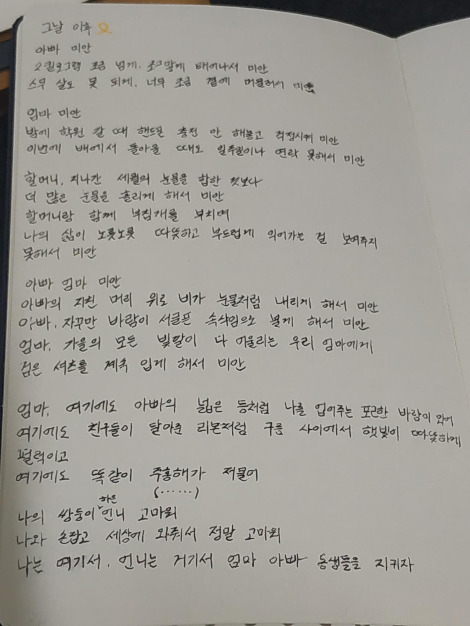 그날 이후
아빠 미안
2킬로그램 조금 넘게, 조그맣게 태어나서 미안
스무 살도 못 되게, 너무 조금 곁에 머물러서 미안
엄마 미안
밤에 학원 갈 때 핸드폰 충전 안 해놓고 걱정시켜 미안
이번에 배에서 돌아올 때도 일주일이나 연락 못해서 미안
할머니, 지나간 세월의 눈물을 합한 것보다
더 많은 눈물을 흘리게 해서 미안
할머니랑 함께 부침개를 부치며
나의 삶이 노릇노릇 따뜻하고 부드럽게 익어가는 걸 보여주지
못해서 미안
아빠 엄마 미안
아빠의 지친 머리 위로 비가 눈물처럼 내리게 해서 미안
아빠, 자꾸만 바람이 서글픈 속삭임으로 불게 해서 미안
엄마, 가을의 모든 빛깔이 다 어울리는 우리 엄마에게
검은 셔츠를 계속 입게 해서 미안
엄마, 여기에도 아빠의 넓은 등처럼 나를 업어주는 포근한 바람이 있어
여기에도 친구들이 달아준 리본처럼 구름 사이에서 햇빛이 따뜻하게
펄럭이고
여기에도 똑같이 주홍해가 저물어
(……)
나의 쌍둥이 하은 언니 고마워
나와 손잡고 세상에 와줘서 정말 고마워
나는 여기서, 언니는 거기서 엄마 아빠 동생들을 지키자